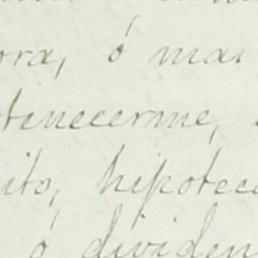 ora, ó mas
rtenecerme,
ito, hipoteca
ó dividen